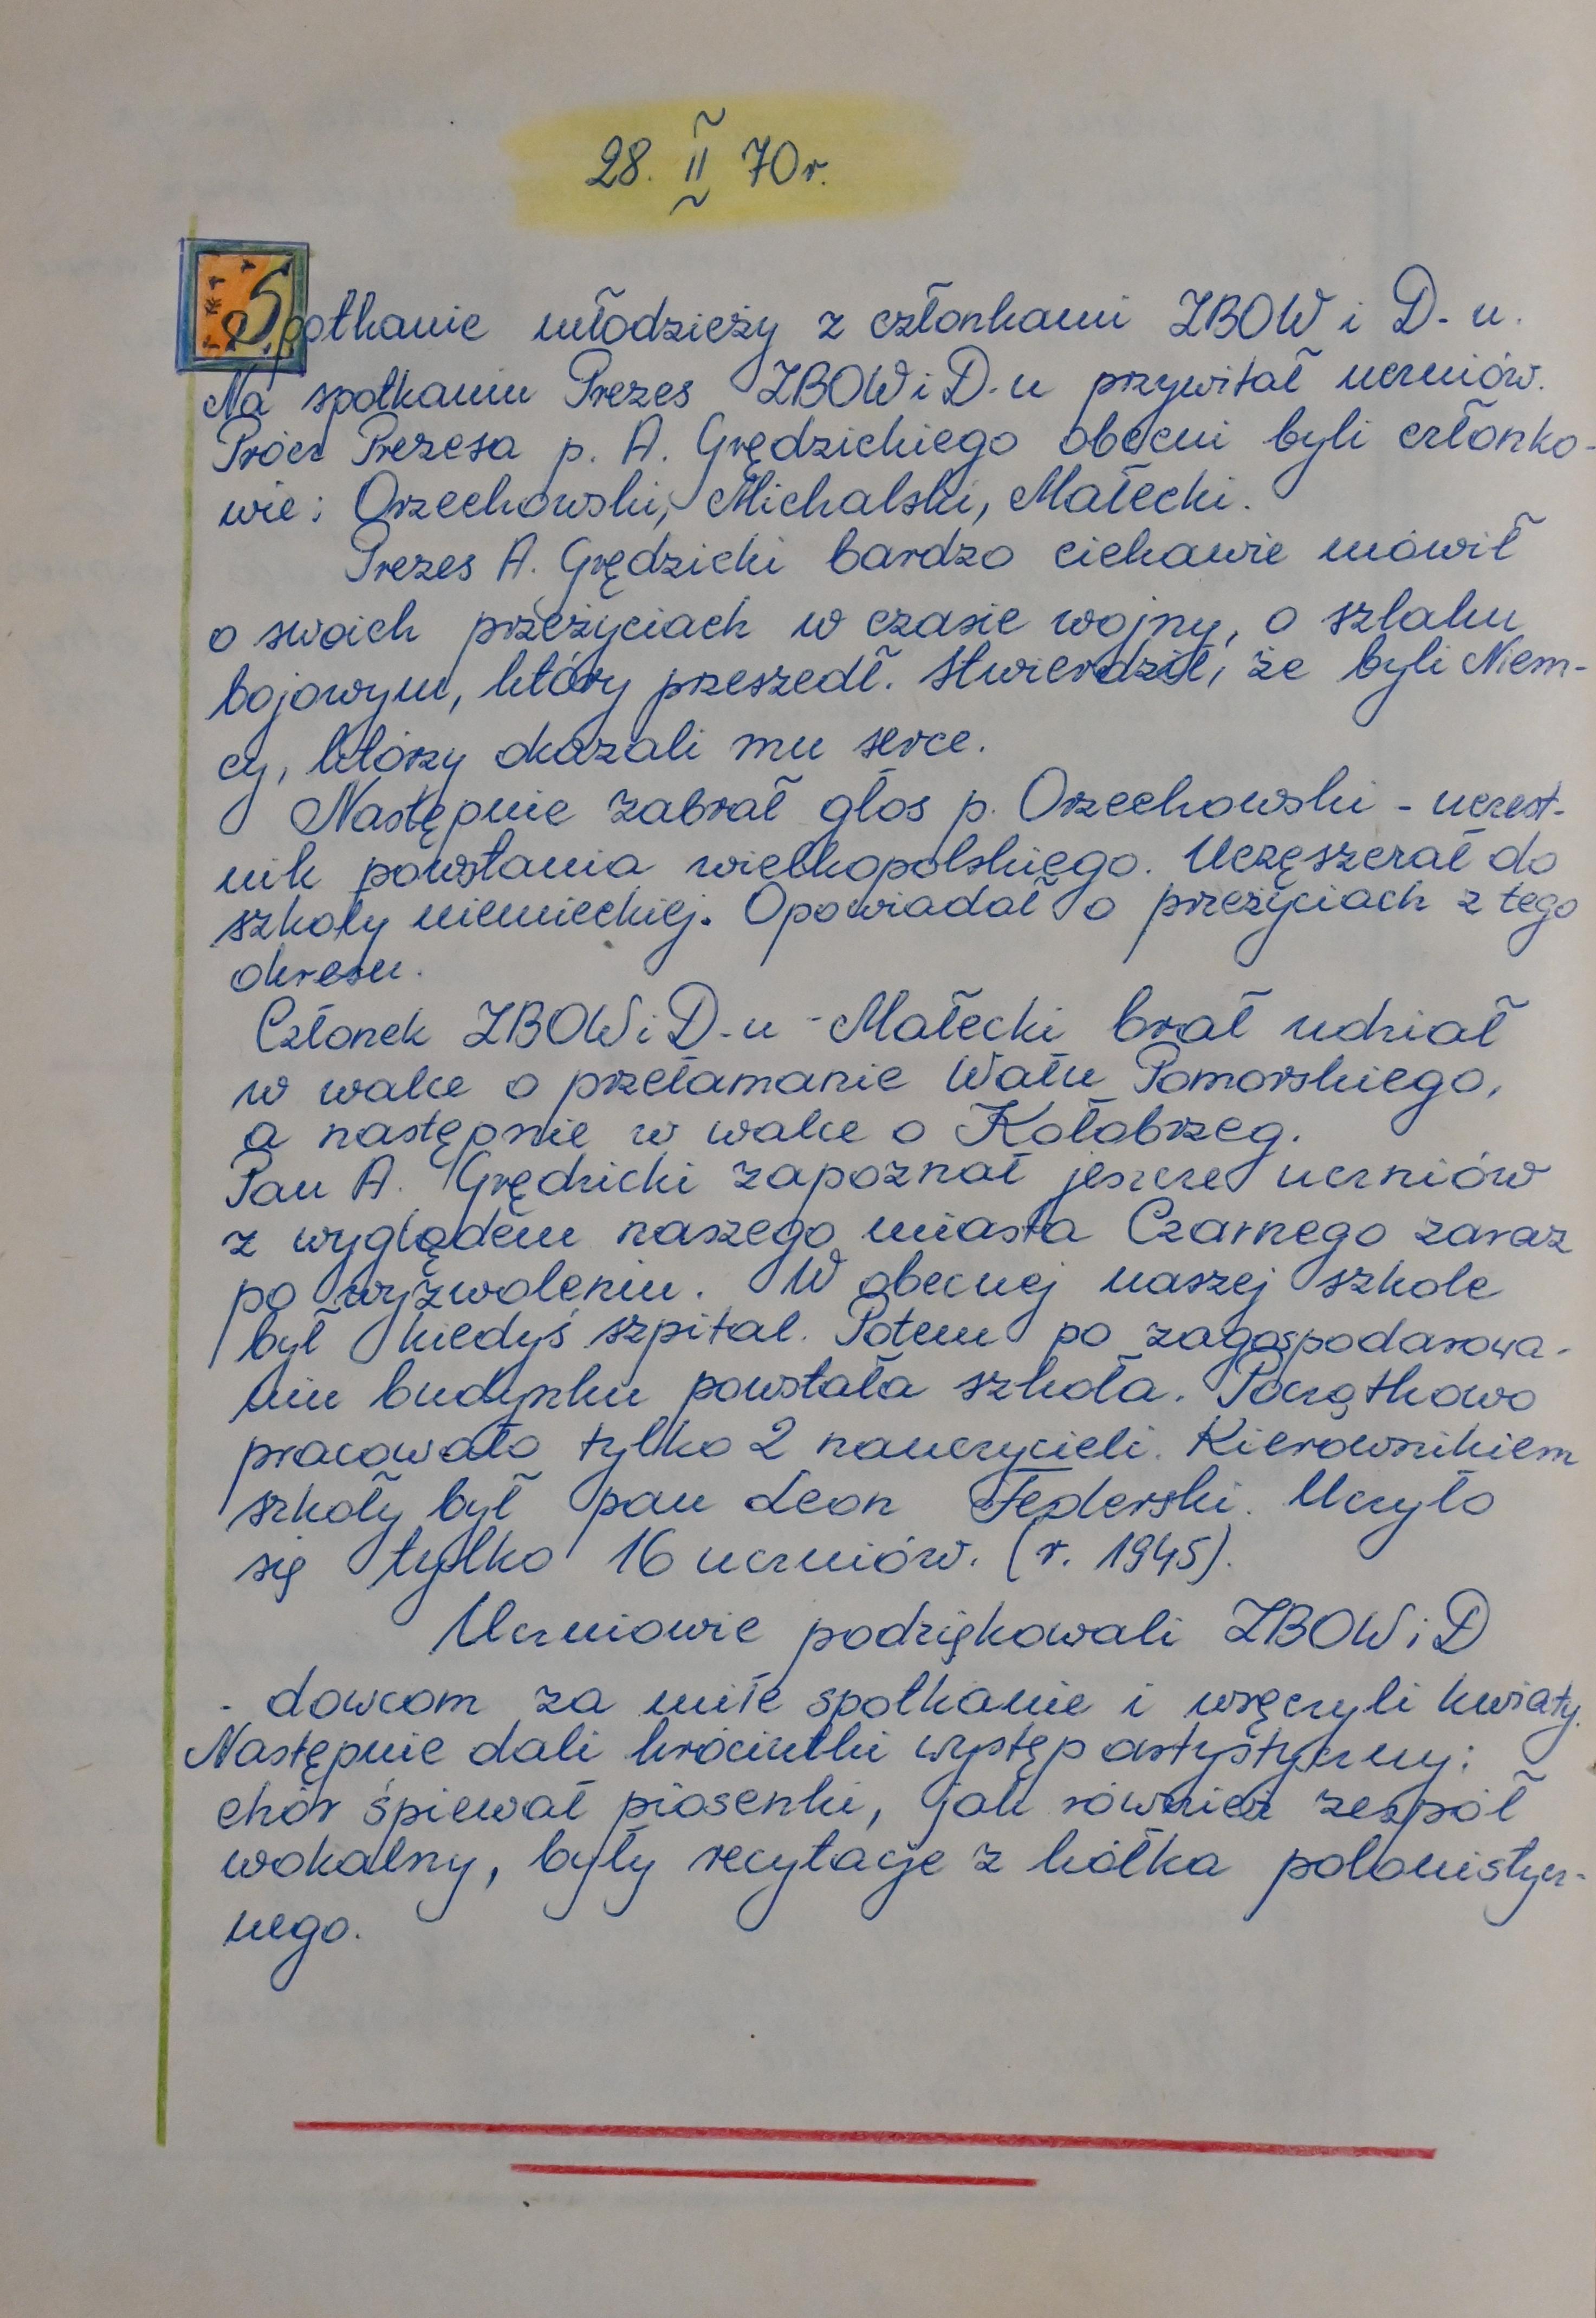 28. II 70 r.
Spotkanie młodzieży z członkami ZBOW i D-u.
Na spotkaniu Prezes ZBOW i D-u przywitał uczniów.
Prócz Prezesa p. A. Grędzickiego obecni byli członko-
wie: Orzechowski, Michalski, Małecki.
Prezes A. Grędzicki bardzo ciekawie mówił
o swoich przeżyciach w czasie wojny, o szlaku
bojowym, który przeszedł. Stwierdził, że byli Niem-
cy, którzy okazali mu serce.
Następnie zabrał głos p. Orzechowski - uczest-
nik powstania wielkopolskiego. Uczęszczał do
szkoły niemieckiej. Opowiadał o przeżyciach z tego
okresu.
Członek ZBOW i D-u - Małecki brał udział
w walce o przełamanie Wału Pomorskiego,
a następnie w walce o Kołobrzeg.
Pan A. Grędzicki zapoznał jeszcze uczniów
z wyglądem naszego miasta Czarnego zaraz
po wyzwoleniu. W obecnej naszej szkole
był kiedyś szpital. Potem po zagospodarowa-
niu budynku powstała szkoła. Początkowo
pracowało tylko 2 nauczycieli. Kierownikiem
szkoły był pan Leon Federski. Uczyło
się tylko 16 uczniów. (r. 1945).
Uczniowie podziękowali ZBOW i D
- dowcom za miłe spotkanie i wręczyli kwiaty.
Następnie dali króciutki występ artystyczny:
chór śpiewał piosenki, jak również zespół
wokalny, były recytacje z kółka polonistycz-
nego.